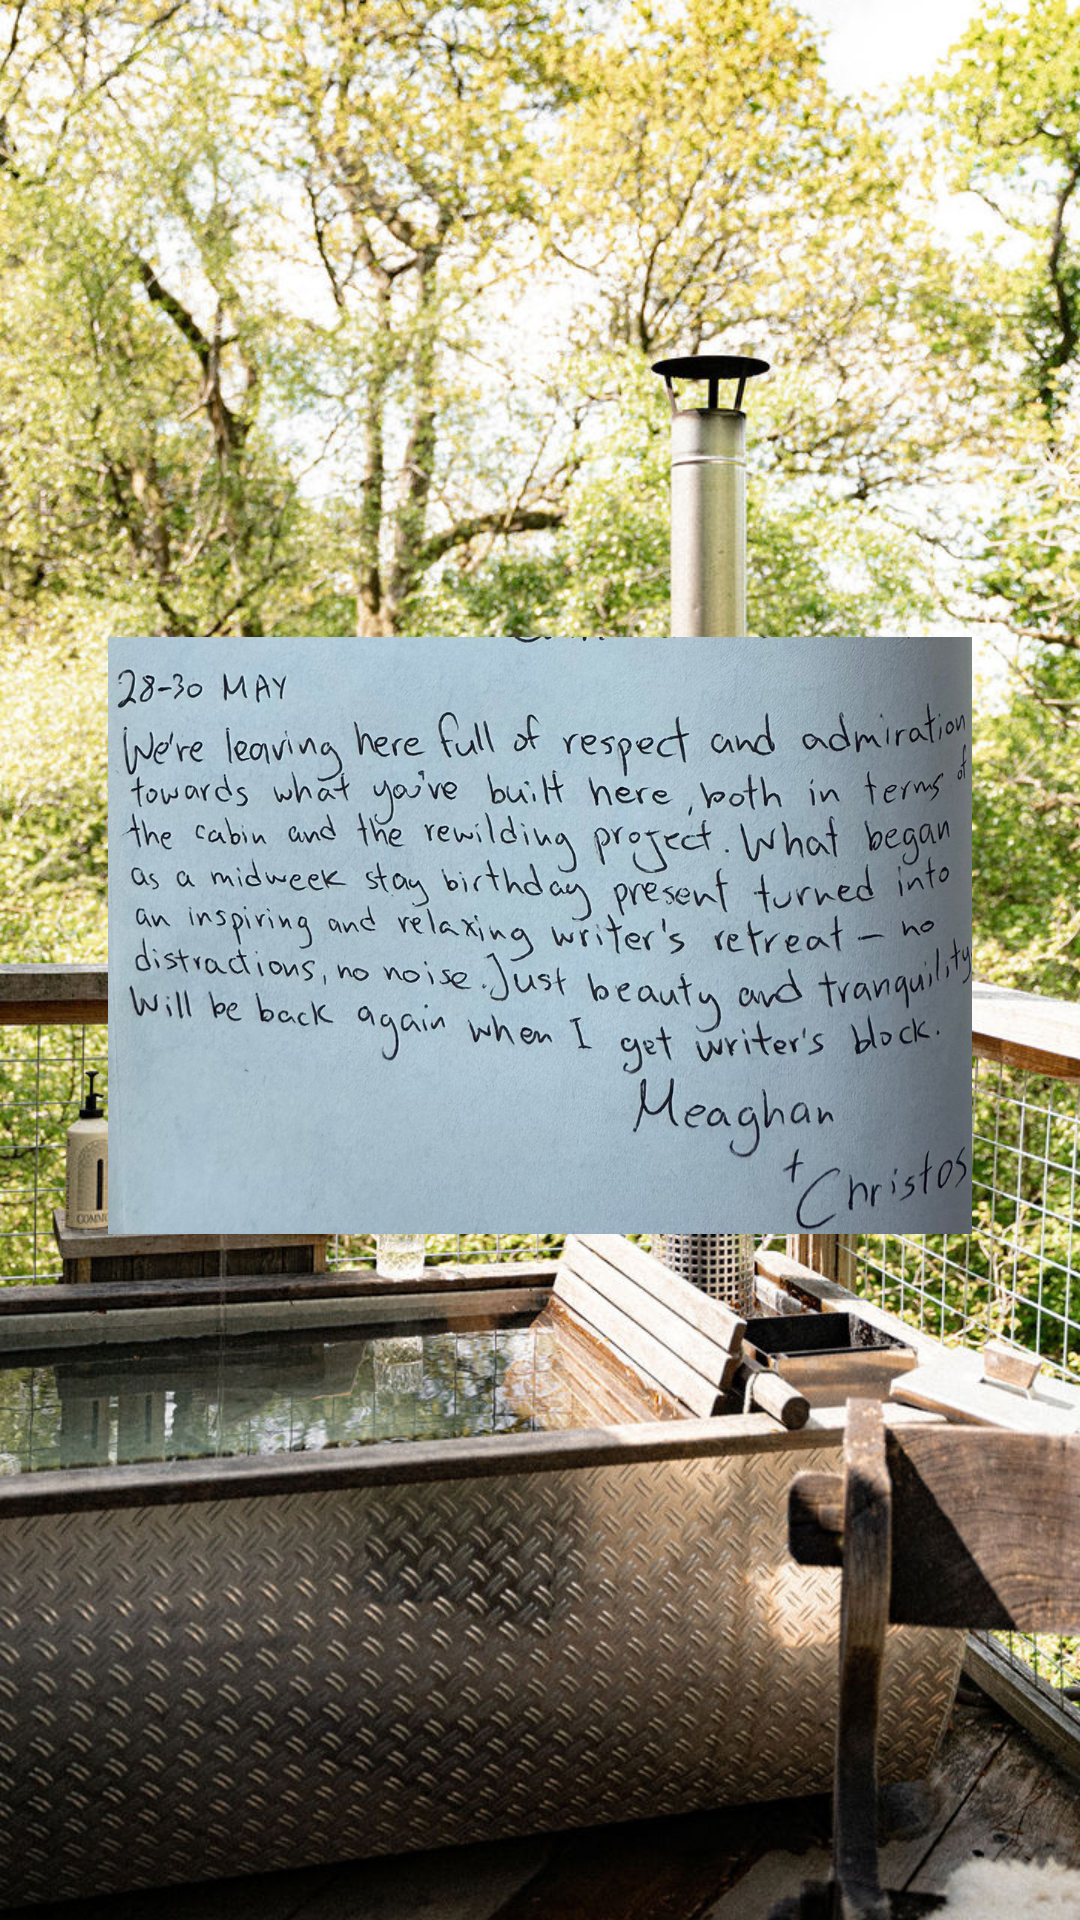 28-30 MAY
We're leaving here full of respect and admiration
towards what you've built here, both in terms of
the cabin and the rewilding project. What began
as a midweek stay birthday present turned into
an inspiring and relaxing writer's retreat – no
distractions, no noise. Just beauty and tranquility
Will be back again when I get writer's block.
Meaghan
+ Christos